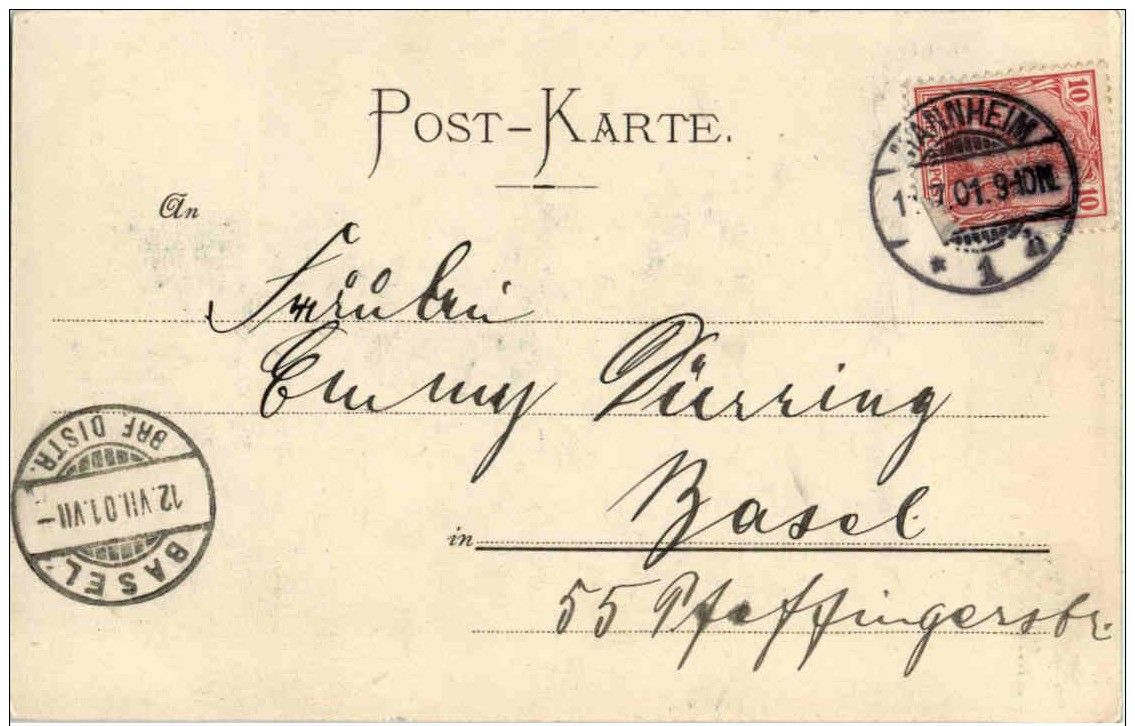 POST-KARTE.
An
Fräulein
Emmy Dürring
in Basel
55 Pfeffingerstr.
MANNHEIM
.7.01. 9-10N.
* 1
10
10
BASEL
12.VII.01.VII-
BRF DISTR.